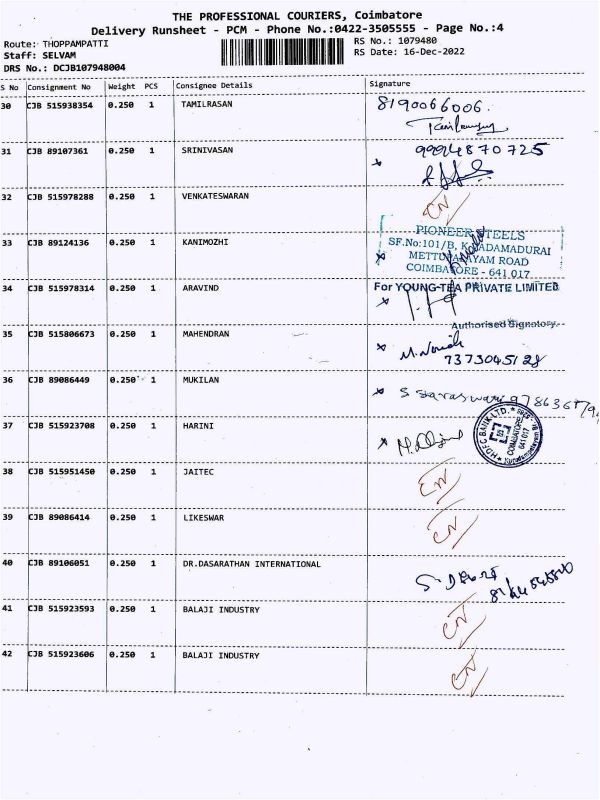 THE PROFESSIONAL COURIERS, Coimbatore
Delivery Runsheet - PCM - Phone No.:0422-3505555 - Page No.:4
Route: THOPPAMPATTI RS No.: 1079480
Staff: SELVAM RS Date: 16-Dec-2022
DRS No.: DCJB107948004
S No Consignment No Weight PCS Consignee Details Signature
30 CJB 515938354 0.250 1 TAMILRASAN 8190066006
31 CJB 89107361 0.250 1 SRINIVASAN 9994870725
32 CJB 515978288 0.250 1 VENKATESWARAN CN
PIONEER STEELS
SF.No:101/B, K
33 CJB 89124136 0.250 1 KANIMOZHI METTUPALAYAM ROAD
COIMBATORE - 641 017
34 CJB 515978314 0.250 1 ARAVIND For YOUNG-TEA PRIVATE LIMITED
Authorised Signatory
35 CJB 515806673 0.250 1 MAHENDRAN
7373045128
36 CJB 89086449 0.250 1 MUKILAN S Saraswari
37 CJB 515923708 0.250 1 HARINI HDFC BANK LTD. COIMBATORE 641 017
38 CJB 515951450 0.250 1 JAITEC CN
39 CJB 89086414 0.250 1 LIKESWAR CN
40 CJB 89106051 0.250 1 DR.DASARATHAN INTERNATIONAL
41 CJB 515923593 0.250 1 BALAJI INDUSTRY CN
42 CJB 515923606 0.250 1 BALAJI INDUSTRY CN